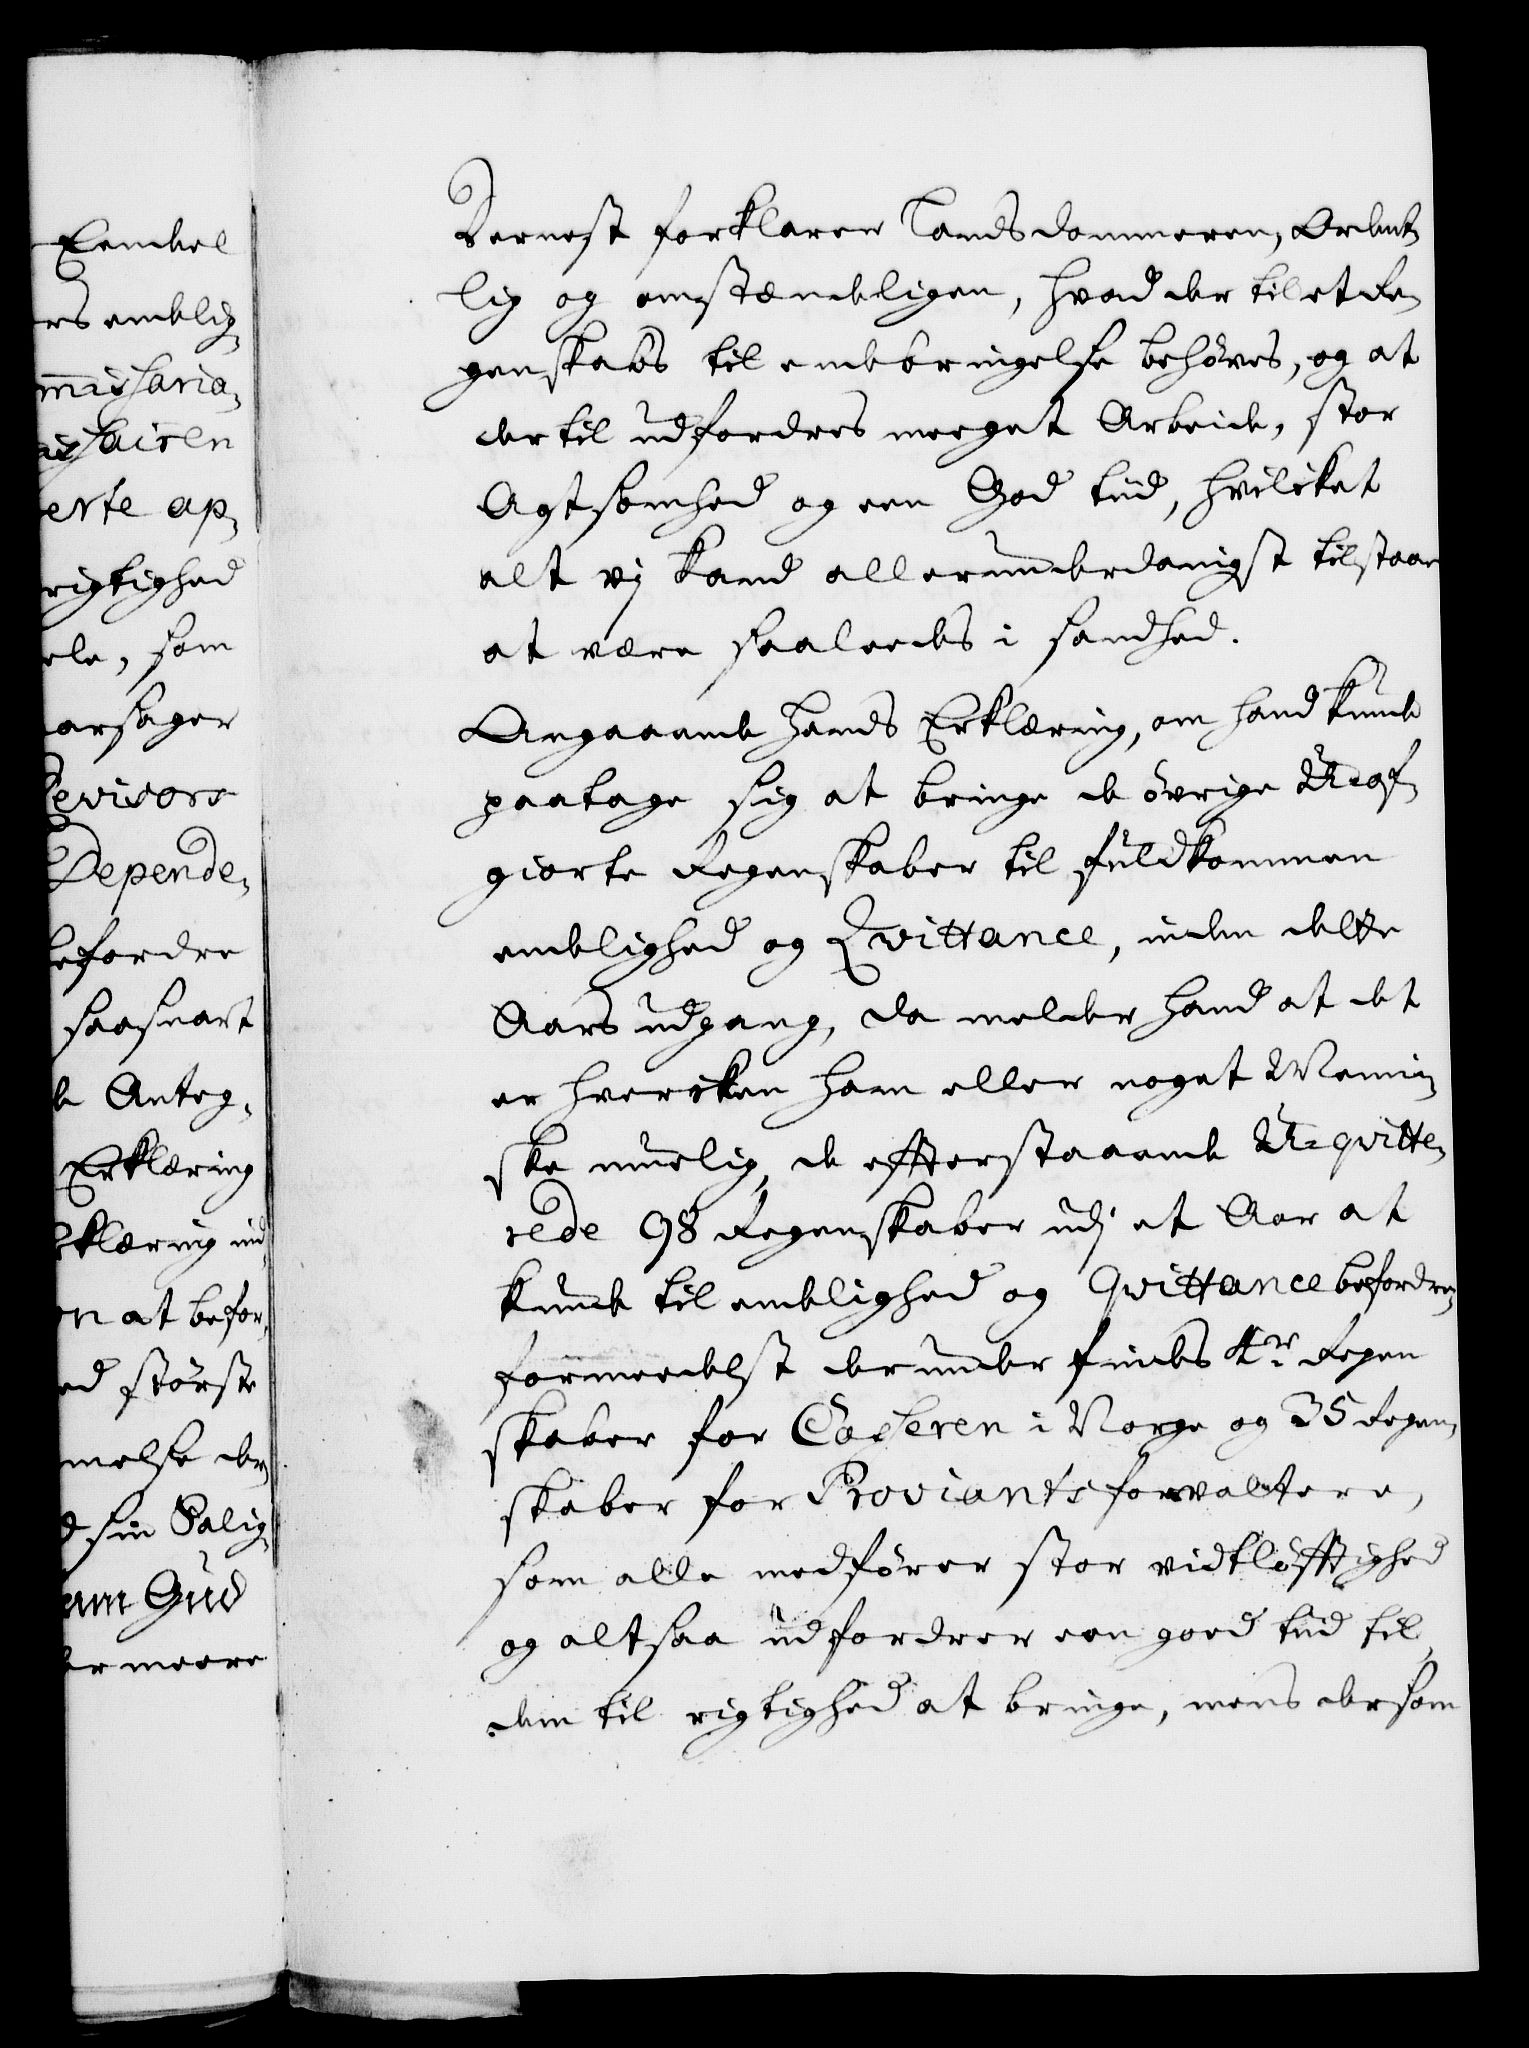 Eendeel
rs endelig
mmissaria-
issairen
erte ap-
rigtighed
ele, som
aarsager
Revisors
Depende-
befordre
saasnart
Anteg-
Erklæring
klæring ind
n at befor-
ed største
melse der
sin Salig-
Gud
er meere
Dernest forklarer Landsdommeren, Ordent-
lig og omstændeligen, hvad der til et Re-
genskabs til endebringelse behøves, og at
dertil udfordres meeget Arbeide, stor
Agtsomhed og een God tiid, hvilcket
alt vj kand allerunderdanigst tilstaae
at være saaleedes i sandhed.
Angaaende hands Erklæring, om hand kunde
paatage sig at bringe de øvrige Uaf-
giorte Regenskaber til fuldkommen
endelighed og Qvittance, inden dette
Aars udgang, da melder hand at det
er hvercken ham eller noget Menni-
ske muelig, de effterstaaende Uqvitte-
rede 98 Regenskaber udj et Aar at
kunde til endelighed og Qvittance befordre,
formeedelst derunder findes 4r Regen
skaber for Casseren i Norge og 35 Regen-
skaber for Proviantsforvaltere,
som alle medfører stor vidtløfftighed
og altsaa udfordrer een goed tiid til,
dem til rigtighed at bringe, mens dersom